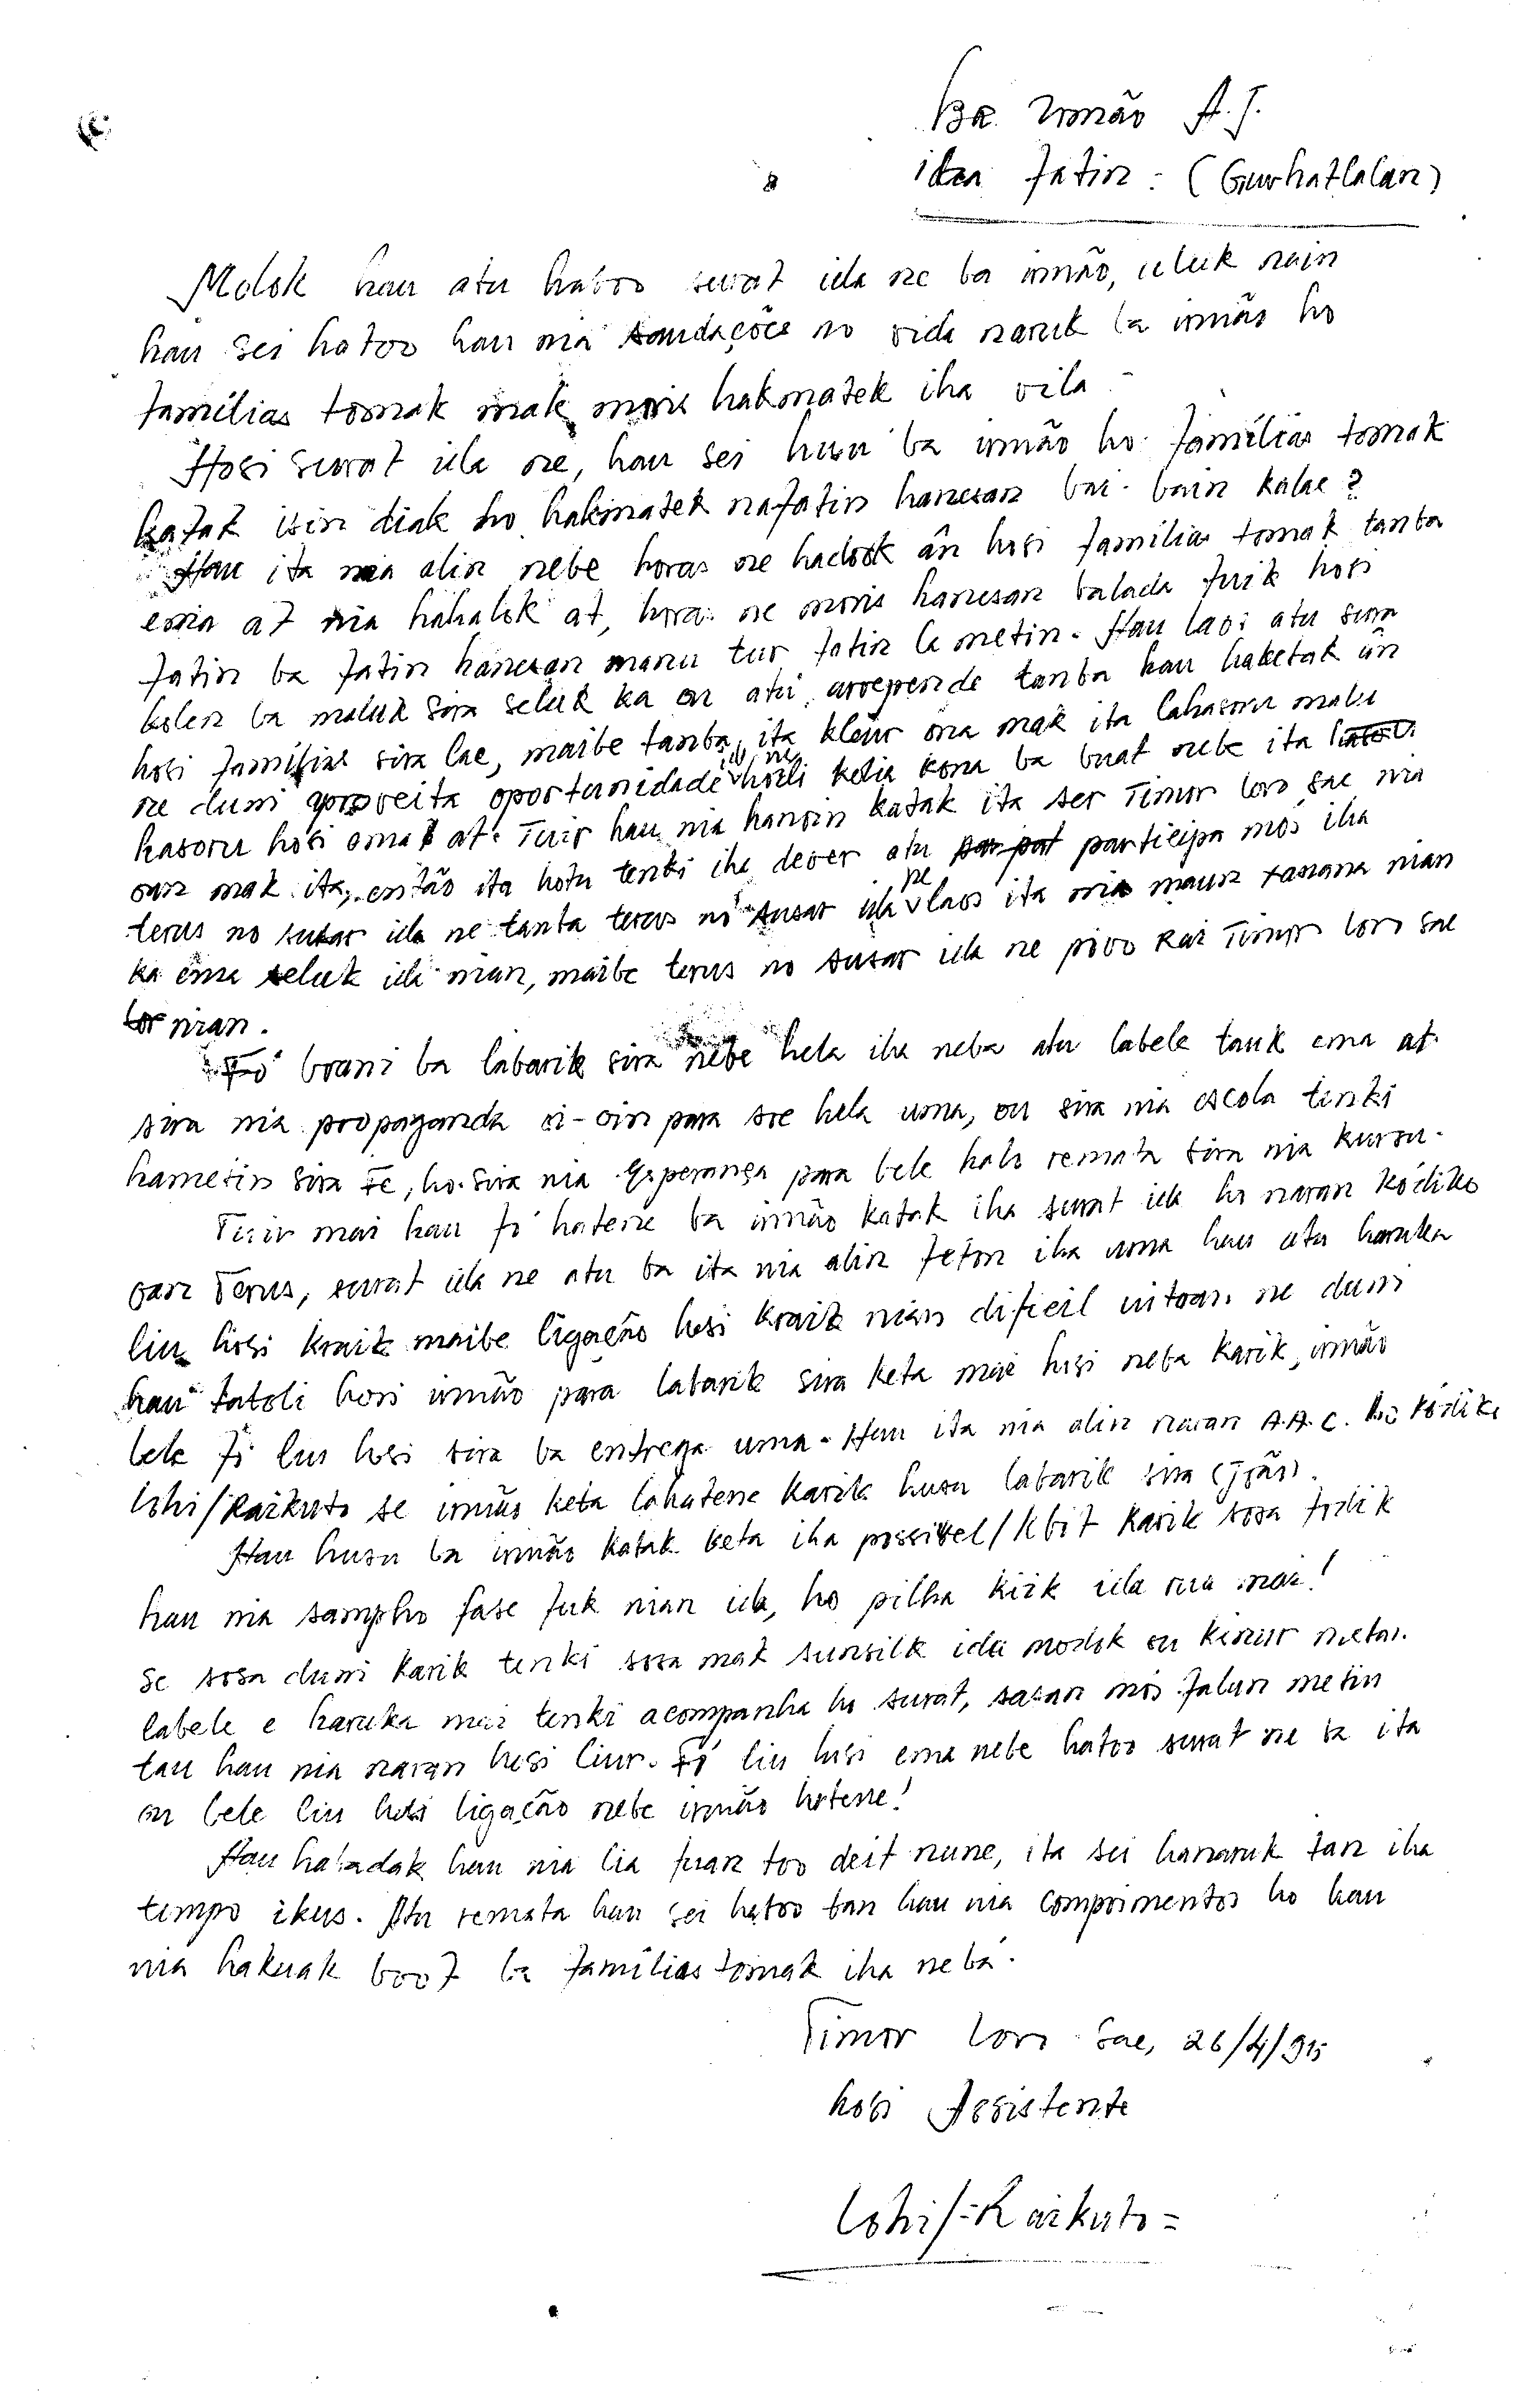 Ba Irmão A.J.
iha fatin: (Guvhatlalan)
Molok hau atu hatoo surat ida ne ba irmão, uluk nain
hau sei hatoo hau nia saudações no vida naruk ba irmão ho
famílias tomak mak moris hakmatek iha vila.
Hosi surat ida ne, hau sei husu ba irmão ho famílias tomak
katak isin diak ho hakmatek nafatin hanesan bai-bain kalae?
Hau ita nia alin nebe horas ne hadook ân hosi famílias tomak tanba
ema at nia hahalok at, horas ne moris hanesan balada fuik hosi
fatin ba fatin hanesan manu tur fatin la metin. Hau laos atu sura
kolen ba maluk sira seluk ka ou atu arrepende tanba hau haketak ân
hosi famílias sira lae, maibe tanba ita kleur ona mak ita lahasoru malu
ne duni aproveita oportunidade ida ne hodi kolia kona ba buat nebe ita
hasoru hosi ema at. Tuir hau nia hanoin katak ita ser Timor loro sae nia
oan mak ita, então ita hotu tenki iha dever atu participa mós iha
terus no susar ida ne tanba terus no susar ida ne laos ita nia maun xanana nian
ka ema seluk ida nian, maibe terus no susar ida ne povo Rai Timor loro sae
nian.
Fó brani ba labarik sira nebe hela iha neba atu labele tauk ema at
sira nia propaganda oi-oin para ne hela uma, ou sira nia escola tenki
hametin sira Fe, ho sira nia Esperança para bele halo remata sira nia kursu.
Tuir mai hau fó hatene ba irmão katak iha surat ida ho naran kódiko
oan Terus, surat ida ne atu ba ita nia alin feton iha uma hau atu haruka
liu hosi kraik maibe ligação hosi kraik nian dificil uitoan ne duni
hau tatoli hosi irmão para labarik sira keta mai hosi neba karik, irmão
bele fó liu hosi sira ba entrega uma. Hau ita nia alin naran A.A.C. ho kódiko
lohi/Raikuto se irmão keta lahatene karik husu labarik sira (jjãs).
Hau husu ba irmão katak keta iha possivel/kbit karik sosa fodik
hau nia sampho fase fuk nian ida, ho pilha kiik ida rua mai!
se sosa duni karik tenki sosa mak sunsilk ida modok ou kinur metan.
labele e haruka mai tenki acompanha ho surat, sasan mós falun metin
tau hau nia naran hosi liur. Fó liu hosi ema nebe hatoo surat ne ba ita
ou bele liu hosi ligação nebe irmão hatene!
Hau habadak hau nia lia fuan too deit nune, ita sei hanaruk tan iha
tempo ikus. Atu remata hau sei hatoo tan hau nia comprimentos ho hau
nia hakuak boot ba famílias tomak iha neba.
Timor loro Sae, 26/4/95
hosi Assistente
Lohi/=Raikuto=